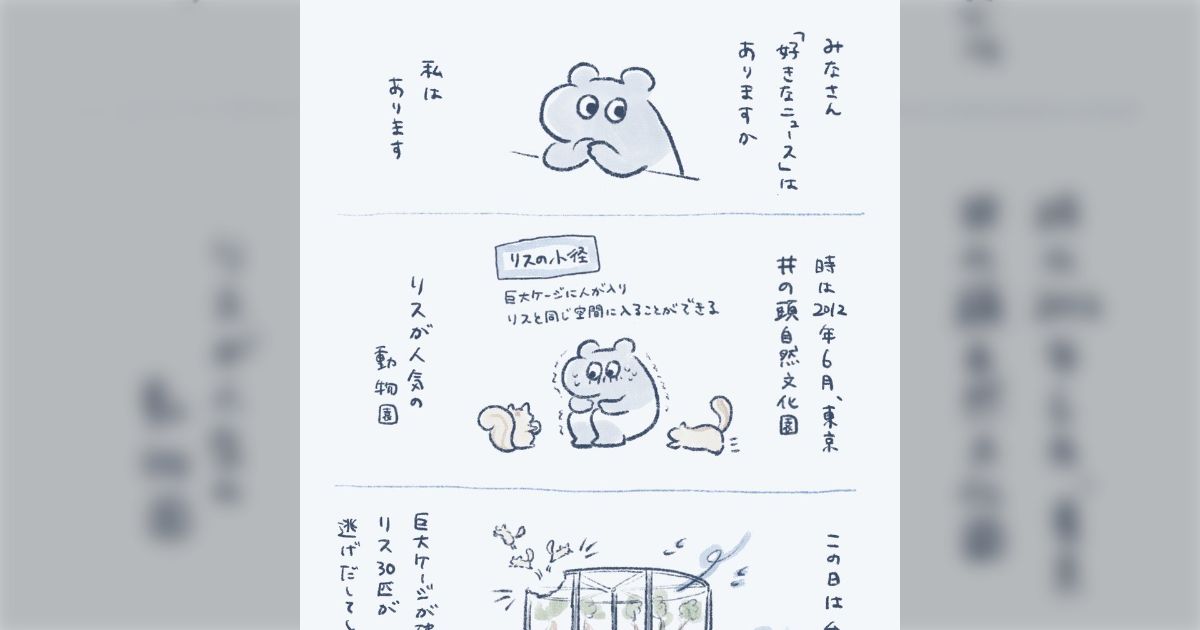 みなさん
「好きなニュース」は
ありますか
私は
あります
時は2012年6月、東京
井の頭自然文化園
リスの小径
巨大ケージに人が入り
リスと同じ空間に入ることができる
リスが人気の
動物園
この日は
巨大ケージが
リス30匹が
逃げだしてし